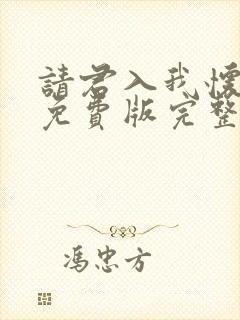 請君入我懷
免費版完整
馮忠方